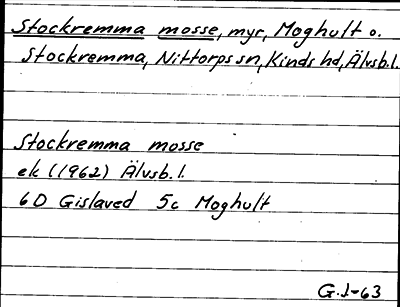 Stockremma mosse, myr, Moghult o.
Stockremma, Nittorps sn, Kinds hd, Älvsb.l.
Stockremma mosse
ek (1962) Älvsb.l.
6D Gislaved 5c Moghult
G.J-63